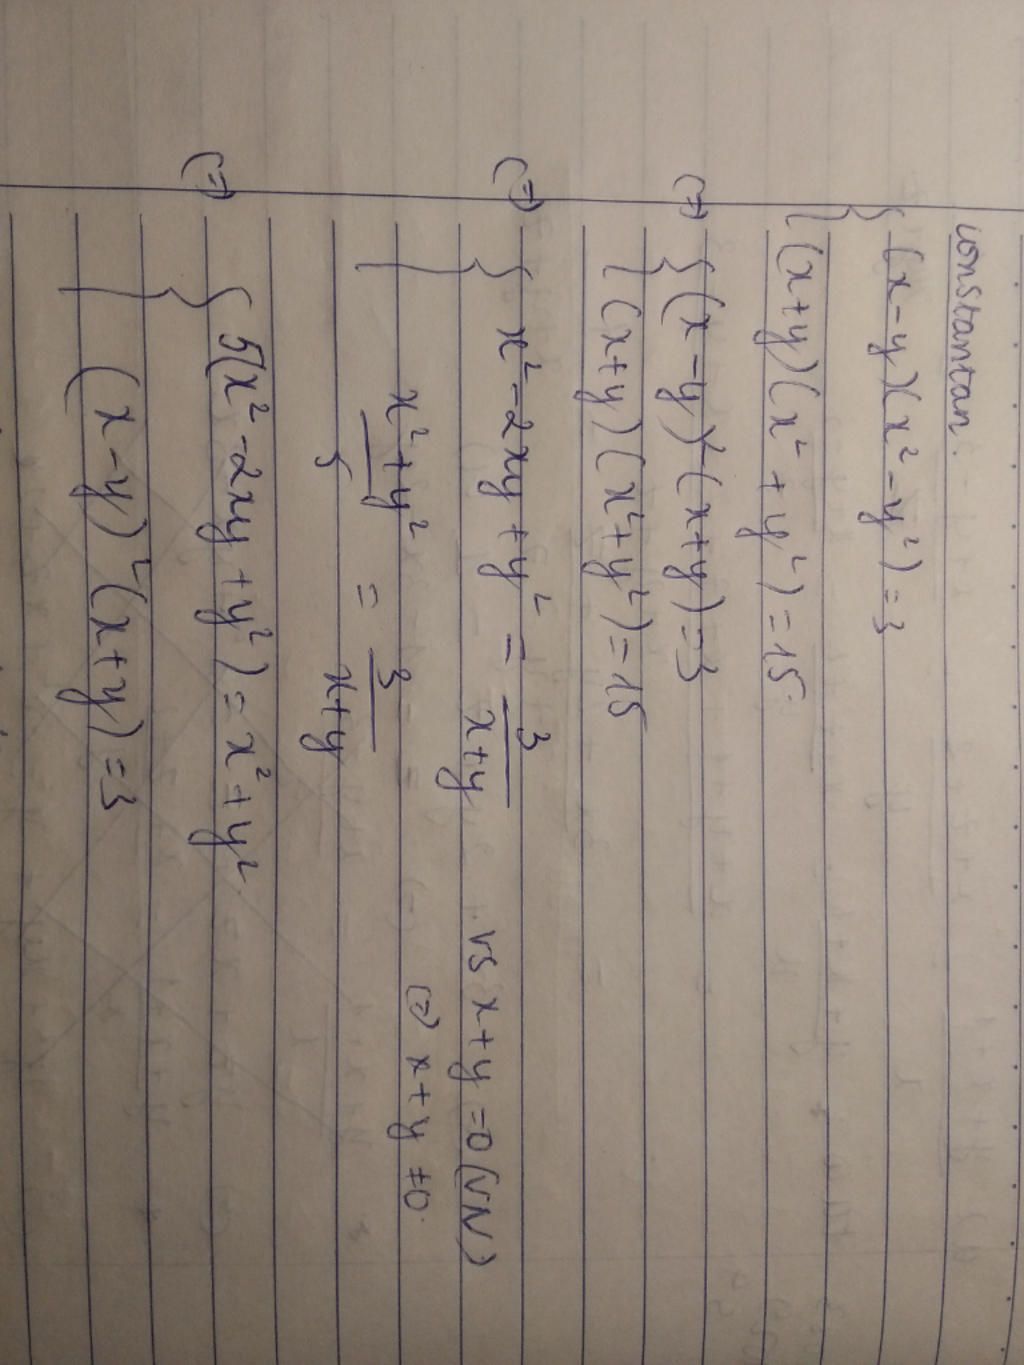 constantan.
{ (x-y)(x²-y²)=3
(x+y)(x²+y²)=15
(=) { (x-y)²(x+y)=3
(x+y)(x²+y²)=15
(=) { x²-2xy+y² = 3/(x+y) vs x+y=0(VN)
(x²+y²)/5 = 3/(x+y) (=) x+y≠0.
(=) { 5(x²-2xy+y²)=x²+y²
(x-y)²(x+y)=3